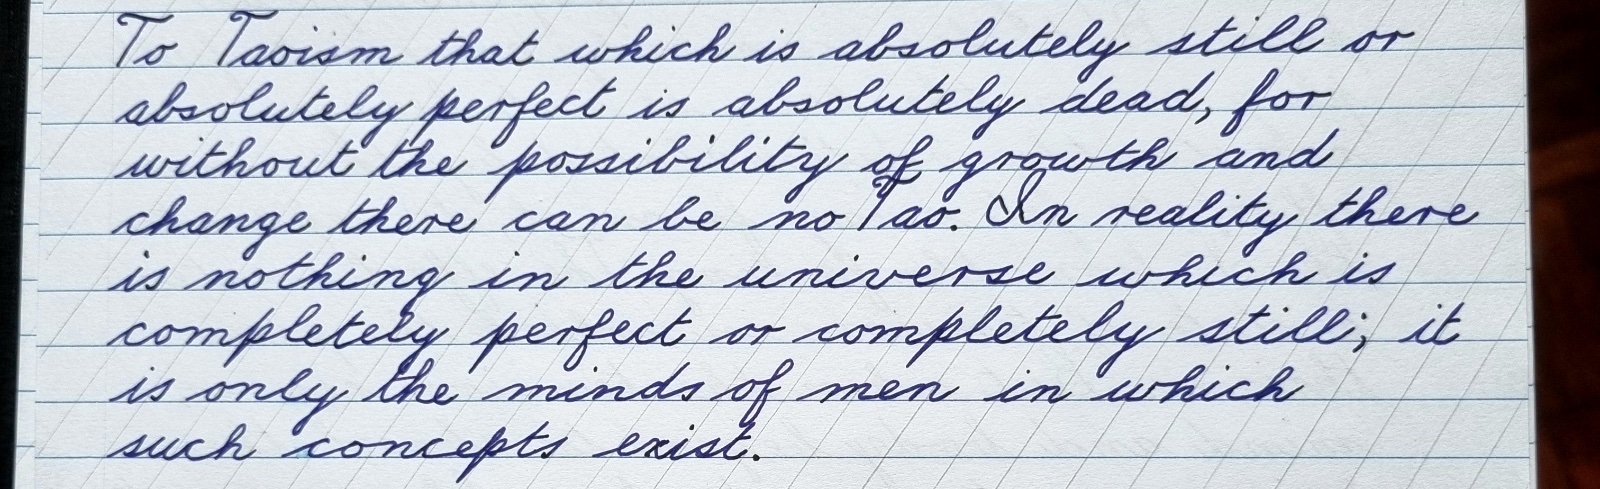 To Taoism that which is absolutely still or
absolutely perfect is absolutely dead, for
without the possibility of growth and
change there can be no Tao. In reality there
is nothing in the universe which is
completely perfect or completely still; it
is only the minds of men in which
such concepts exist.